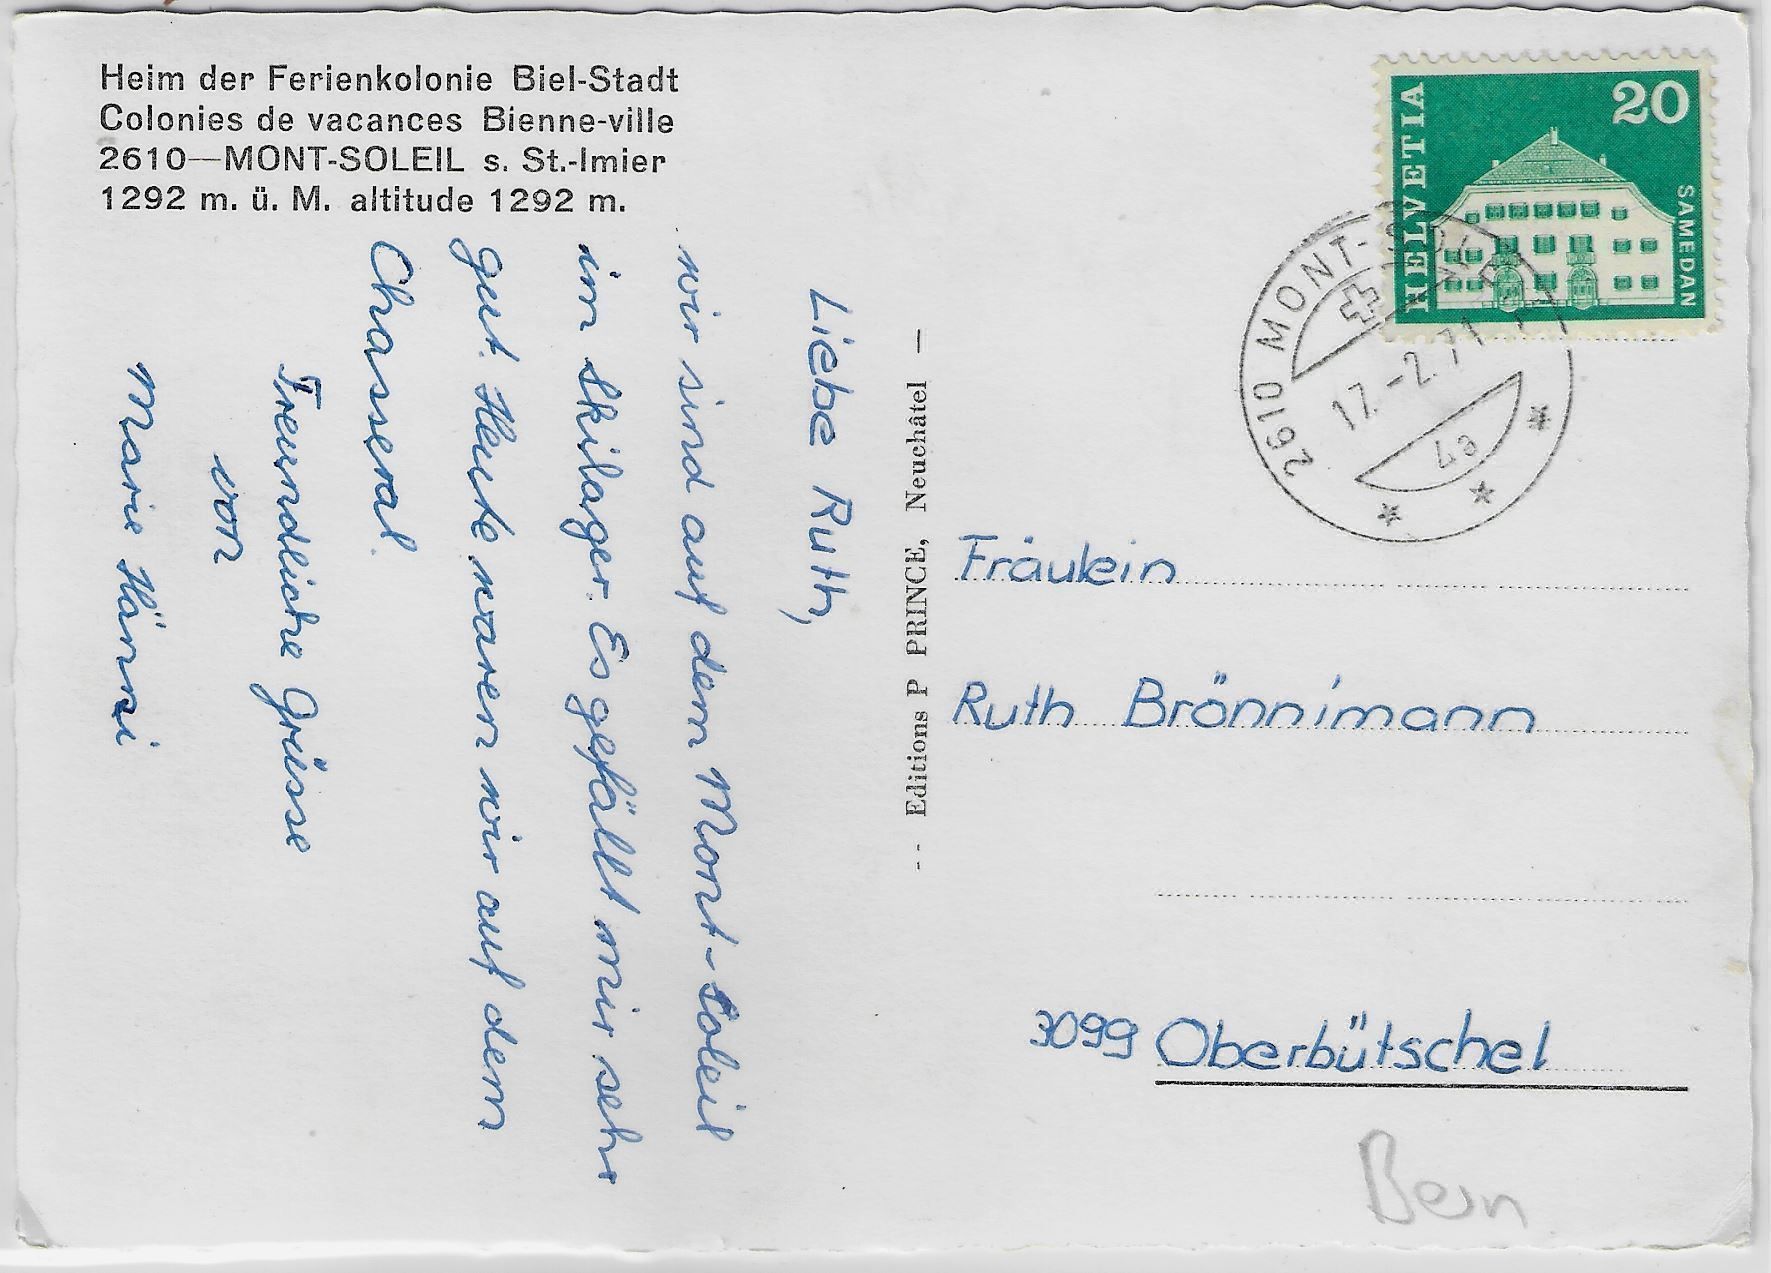 Heim der Ferienkolonie Biel-Stadt
Colonies de vacances Bienne-ville
2610—MONT-SOLEIL s. St.-Imier
1292 m. ü. M. altitude 1292 m.
Liebe Ruth,
wir sind auf dem Mont-Soleil
im Skilager. Es gefällt mir sehr
gut. Heute waren wir auf dem
Chasseral.
Freundliche Grüsse
von
Marie Hänni
-- Editions P PRINCE, Neuchâtel —
HELVETIA
20
SAMEDAN
2610 MONT-SOLEIL
17.-2.71
4a
Fräulein
Ruth Brönnimann
3099 Oberbütschel
Bern